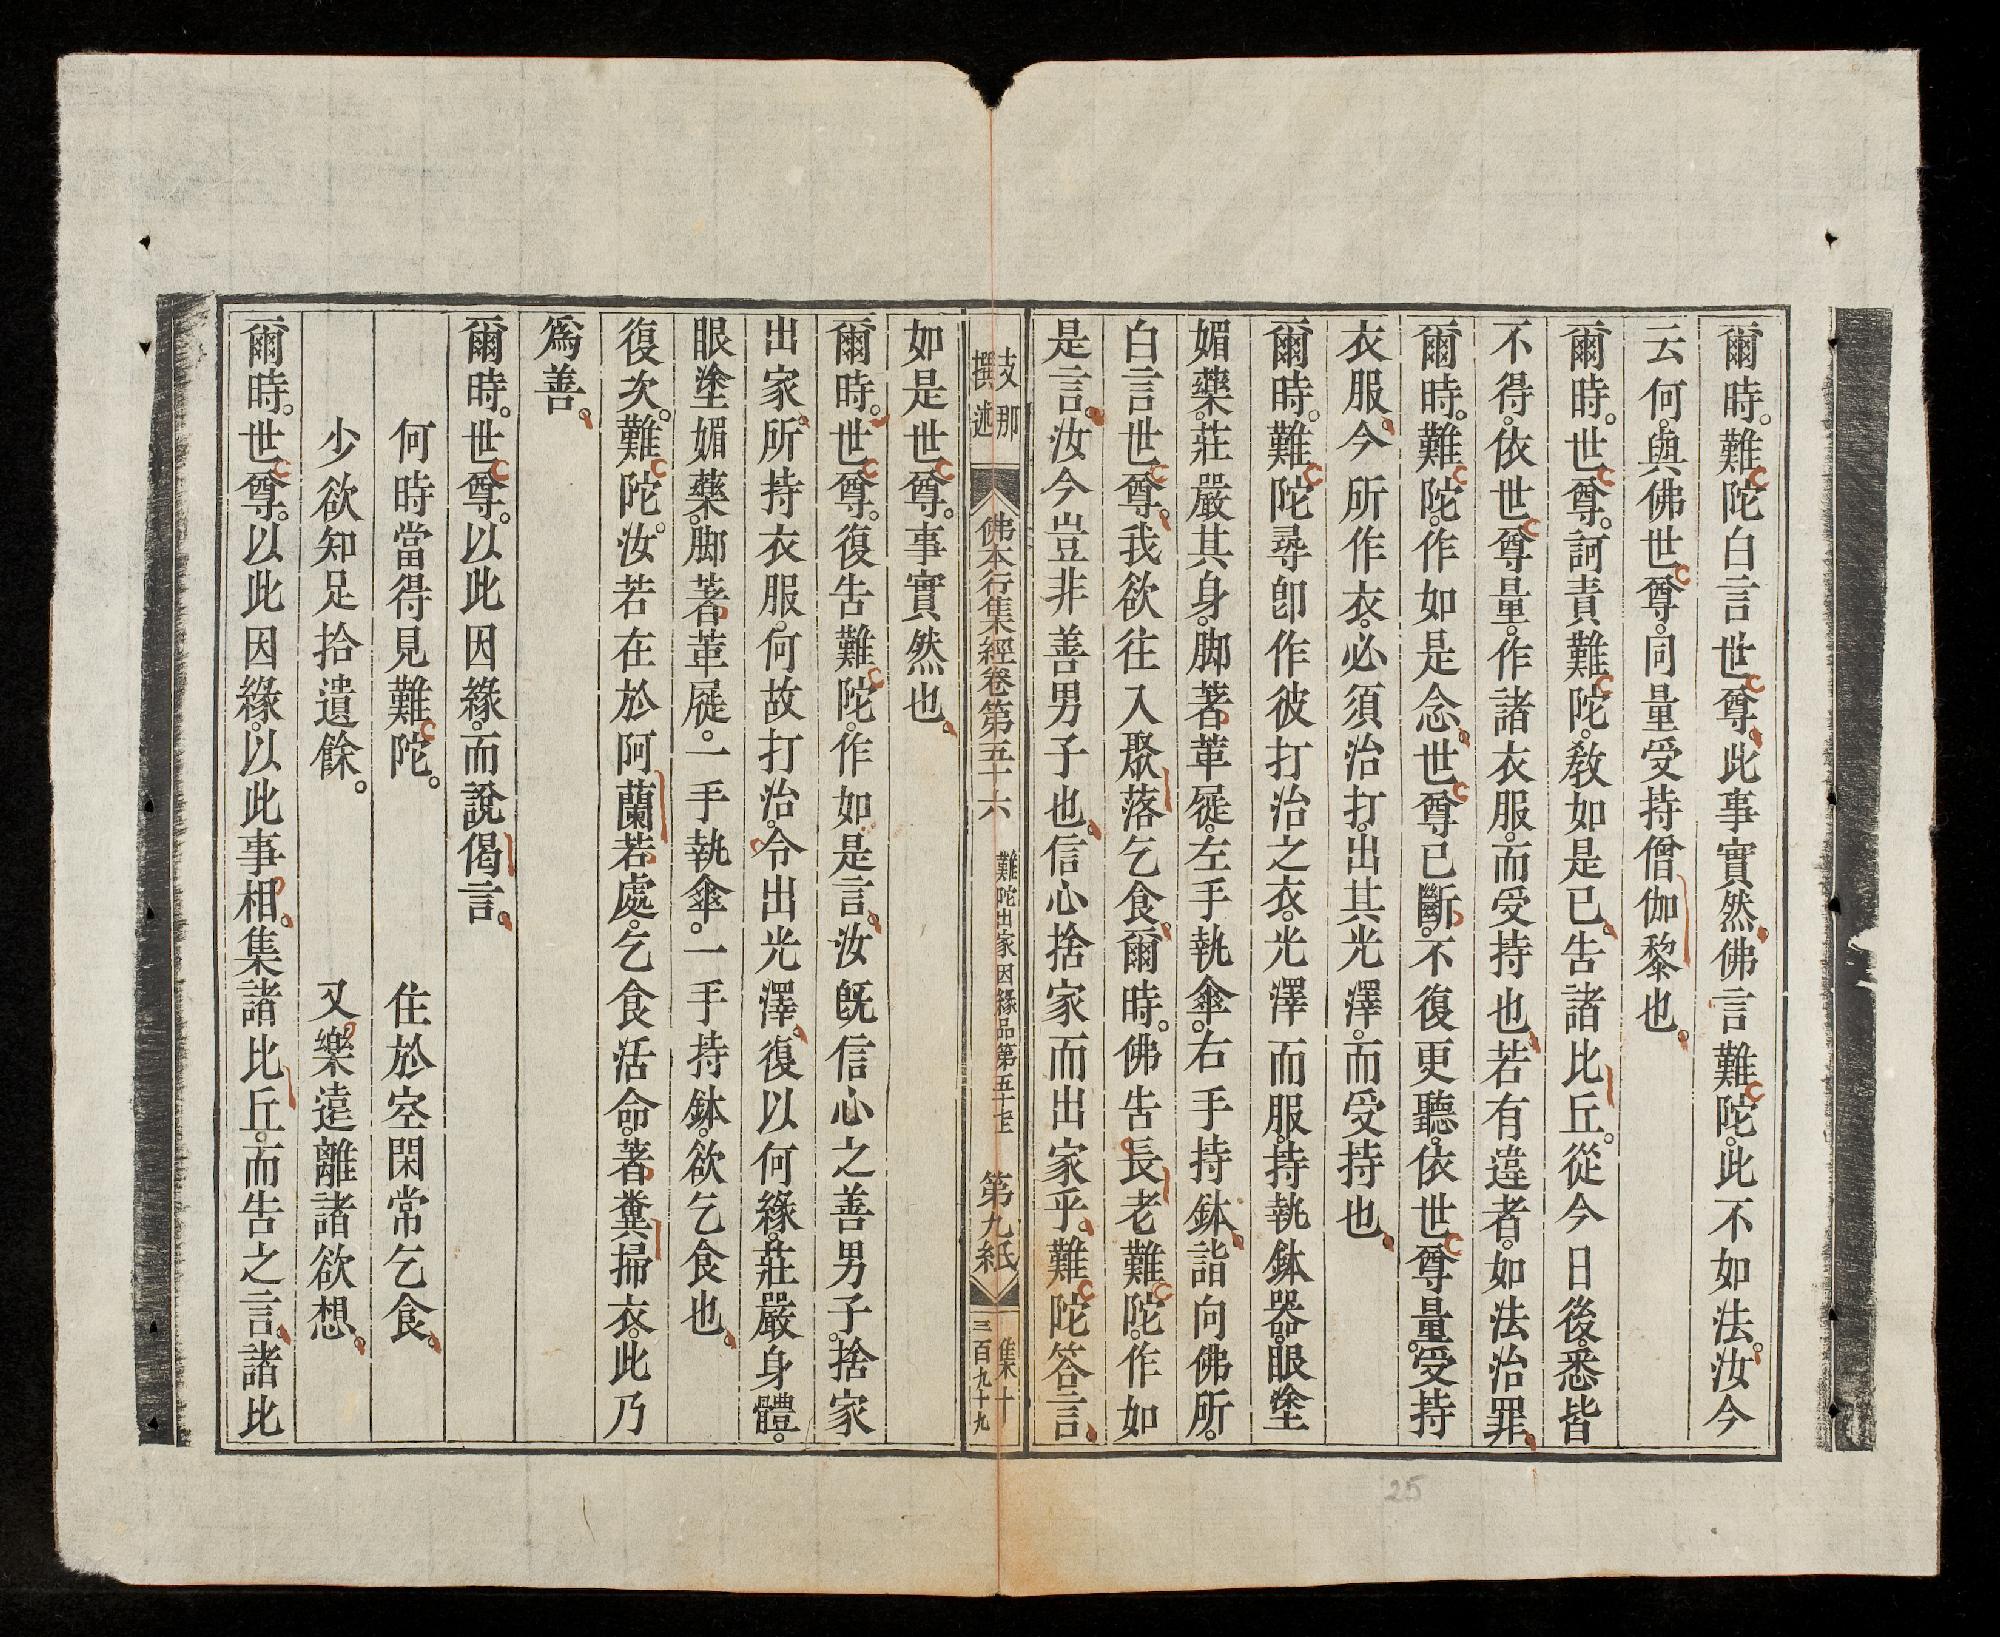 爾時。難陀白言世尊。此事實然。佛言難陀。此不如法。汝今
云何。與佛世尊。同量受持僧伽黎也。
爾時。世尊。訶責難陀。教如是已。告諸比丘。從今日後。悉皆
不得。依世尊量。作諸衣服。而受持也。若有違者。如法治罪。
爾時。難陀。作如是念。世尊已斷。不復更聽。依世尊量。受持
衣服。今所作衣。必須治打。出其光澤。而受持也。
爾時。難陀尋卽作彼打治之衣。光澤而服。持執鉢器。眼塗
媚藥。莊嚴其身。脚著革屣。左手執傘。右手持鉢。詣向佛所。
白言世尊。我欲往入聚落乞食。爾時。佛告長老難陀。作如
是言。汝今豈非善男子也。信心捨家而出家乎。難陀答言。
支那
撰述
佛本行集經卷第五十六
難陀出家因緣品第五十七
第九紙
集十
三百九十九
如是世尊。事實然也。
爾時。世尊。復告難陀。作如是言。汝旣信心之善男子。捨家
出家。所持衣服。何故打治。令出光澤。復以何緣。莊嚴身體。
眼塗媚藥。脚著革屣。一手執傘。一手持鉢。欲乞食也。
復次。難陀。汝若在於阿蘭若處。乞食活命。著糞掃衣。此乃
爲善。
爾時。世尊。以此因緣。而說偈言。
何時當得見難陀。 住於空閑常乞食。
少欲知足拾遺餘。 又樂遠離諸欲想。
爾時。世尊。以此因緣。以此事相。集諸比丘。而告之言。諸比
25